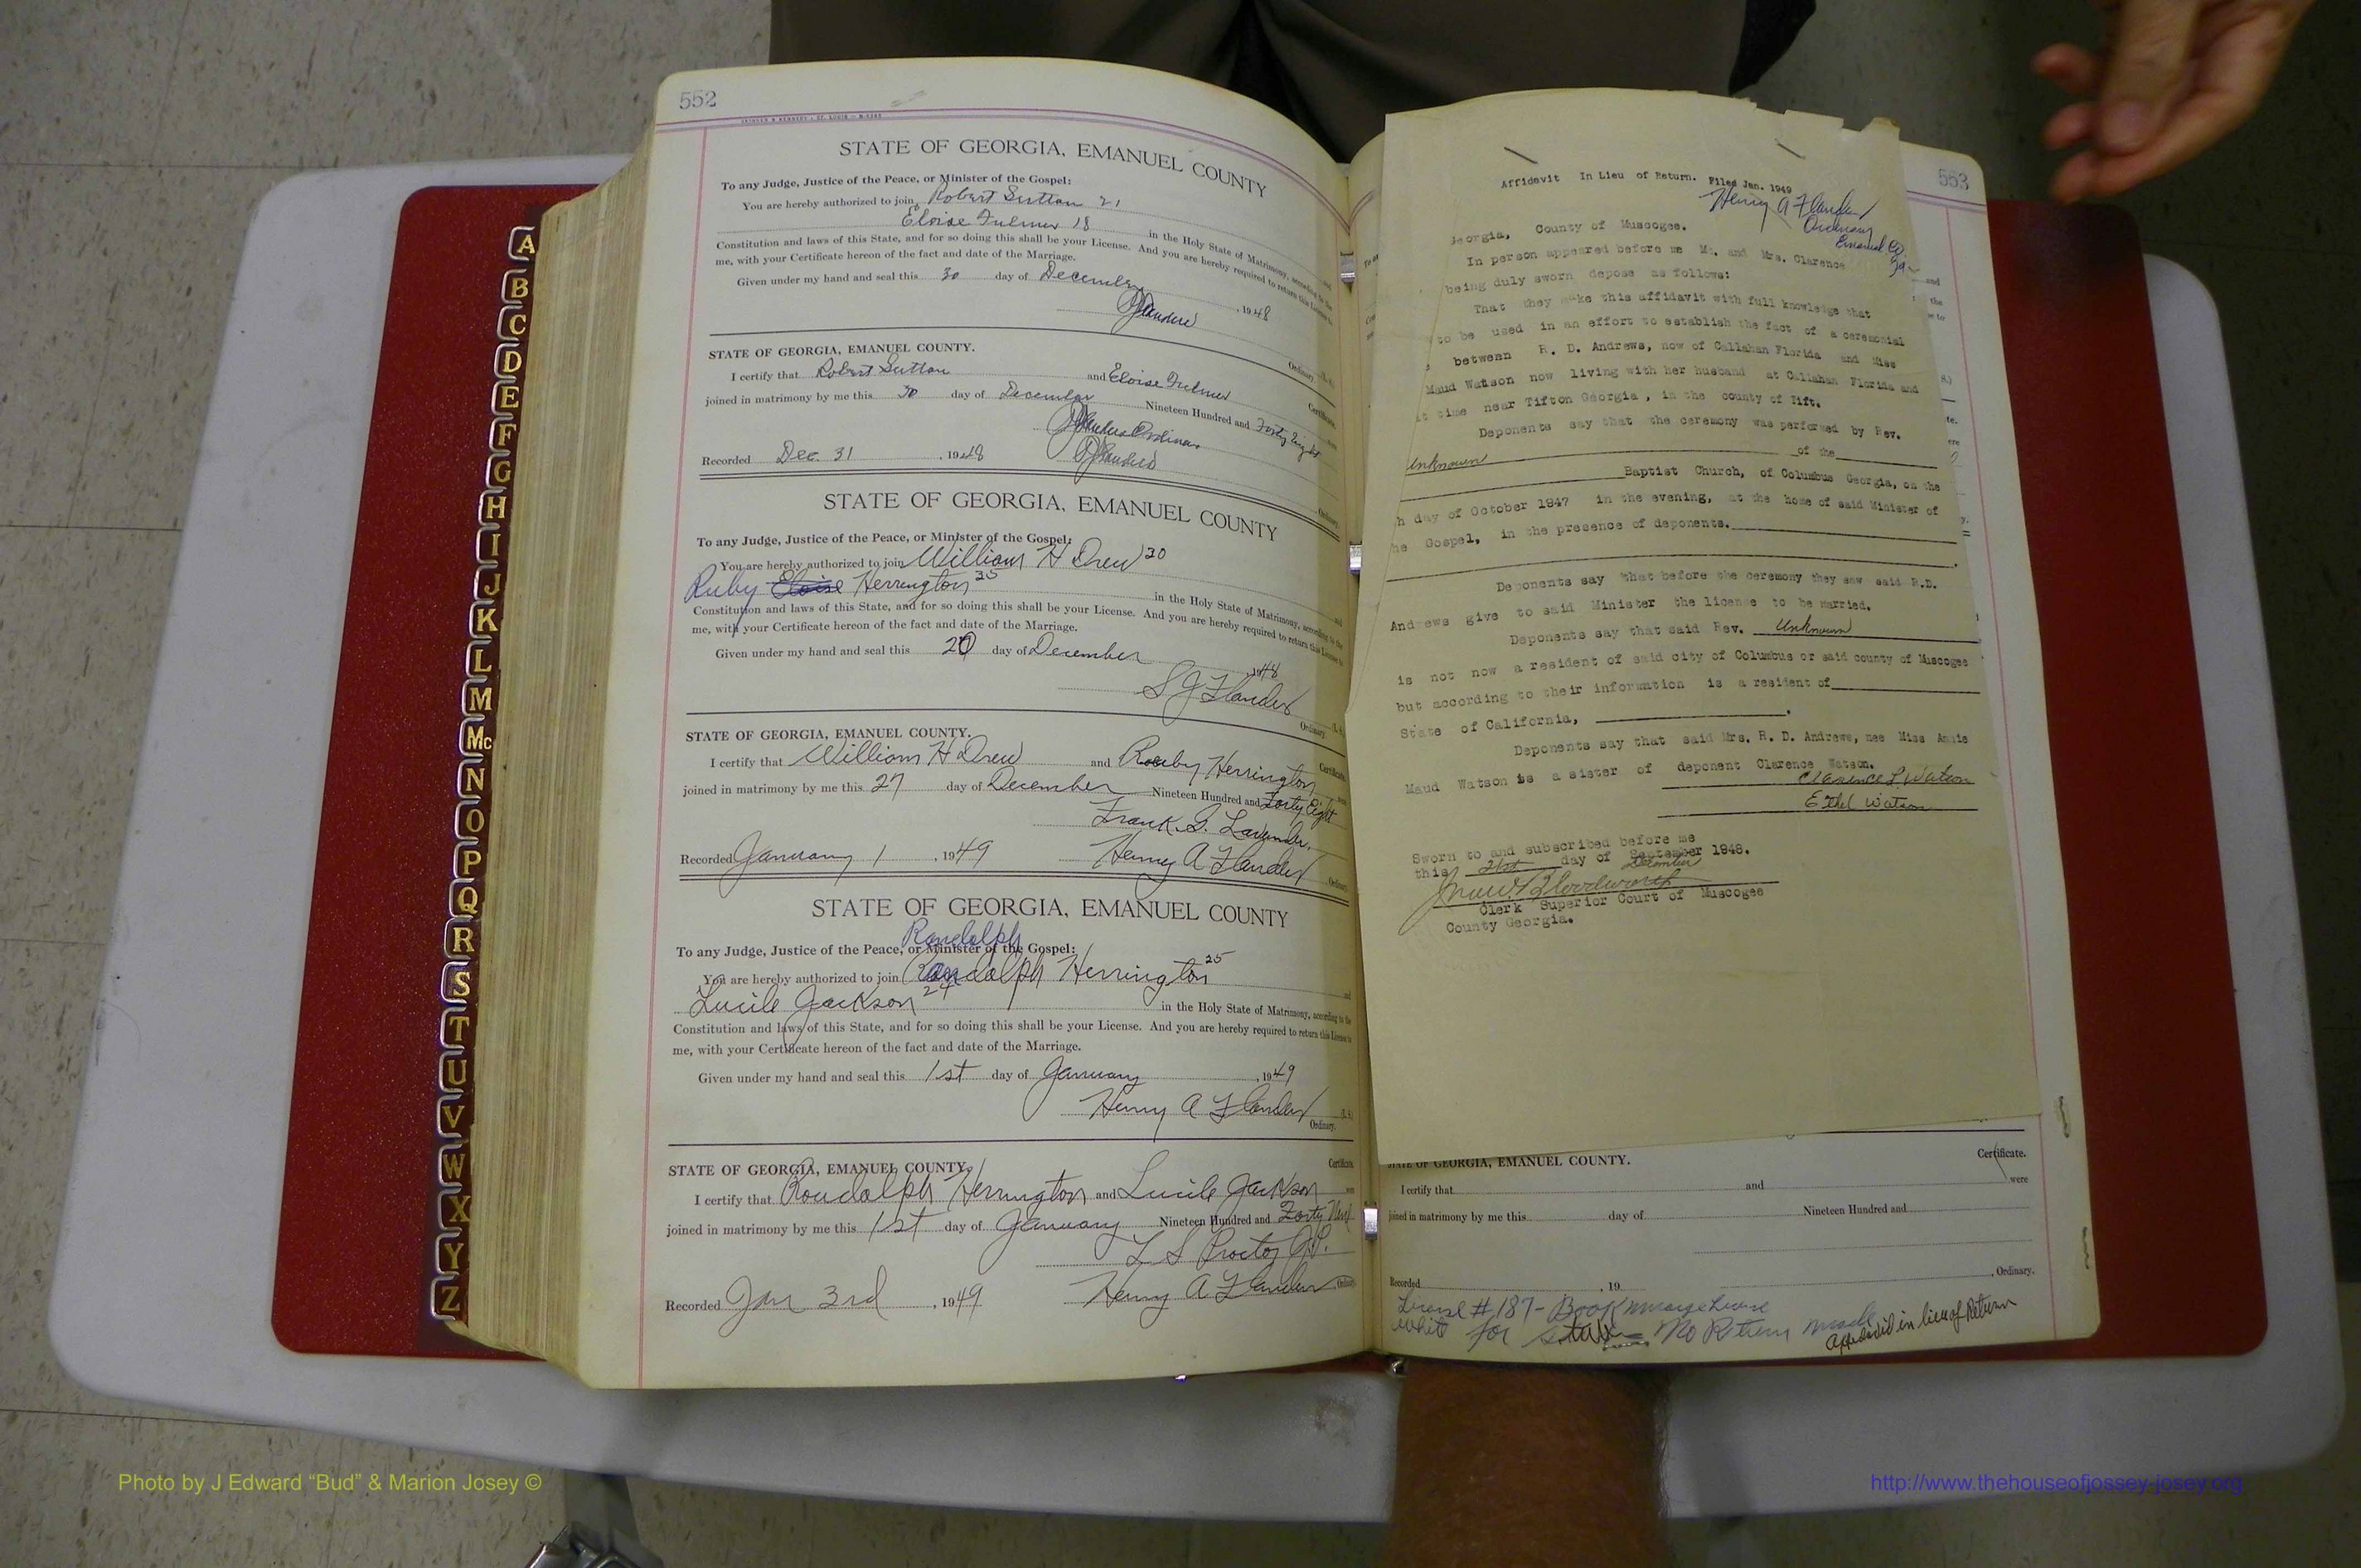 552
STATE OF GEORGIA, EMANUEL COUNTY
To any Judge, Justice of the Peace, or Minister of the Gospel:
You are hereby authorized to join Robert Sutton 21
Eloise Fulmer 18 in the Holy State of Matrimony, according to the
Constitution and laws of this State, and for so doing this shall be your License. And you are hereby required to return this License to
me, with your Certificate hereon of the fact and date of the Marriage.
Given under my hand and seal this 30 day of December, 1948
Ordinary.
STATE OF GEORGIA, EMANUEL COUNTY. Certificate.
I certify that Robert Sutton and Eloise Fulmer
joined in matrimony by me this 30 day of December Nineteen Hundred and Forty Eight
Recorded Dec. 31, 1948
Ordinary.
STATE OF GEORGIA, EMANUEL COUNTY
To any Judge, Justice of the Peace, or Minister of the Gospel:
You are hereby authorized to join William H Drew 30
Ruby Eloise Herrington 25 in the Holy State of Matrimony, according to the
Constitution and laws of this State, and for so doing this shall be your License. And you are hereby required to return this License to
me, with your Certificate hereon of the fact and date of the Marriage.
Given under my hand and seal this 20 day of December, 1948
S J Flanders
Ordinary.
STATE OF GEORGIA, EMANUEL COUNTY. Certificate.
I certify that William H Drew and Ruby Herrington
joined in matrimony by me this 27 day of December Nineteen Hundred and Forty Eight
Frank G. Lavender.
Recorded January 1, 1949 Henry A Flanders
Ordinary
STATE OF GEORGIA, EMANUEL COUNTY
Randolph
To any Judge, Justice of the Peace, or Minister of the Gospel:
You are hereby authorized to join Randolph Herrington 25
Lucile Jackson 24 in the Holy State of Matrimony, according to the
Constitution and laws of this State, and for so doing this shall be your License. And you are hereby required to return this License to
me, with your Certificate hereon of the fact and date of the Marriage.
Given under my hand and seal this 1st day of January, 1949
Henry A Flanders (L.S.)
Ordinary.
STATE OF GEORGIA, EMANUEL COUNTY. Certificate.
I certify that Roudalph Herrington and Lucile Jackson
joined in matrimony by me this 1st day of January Nineteen Hundred and Forty Nine
L S Proctor J.P.
Recorded Jan 3rd, 1949 Henry A Flanders Ordinary
A
B
C
D
E
F
G
H
I
J
K
L
M
Mc
N
O
P
Q
R
S
T
U
V
W
X
Y
Z
553
Affidavit In Lieu of Return. Filed Jan. 1949
Henry A Flanders
Ordinary
Emanuel Co.
Ga
Georgia, County of Muscogee.
In person appeared before me Mr. and Mrs. Clarence
being duly sworn depose as follows:
That they make this affidavit with full knowledge that
to be used in an effort to establish the fact of a ceremonial
between R. D. Andrews, now of Callahan Florida and Miss
Maud Watson now living with her husband at Callahan Florida and
time near Tifton Georgia, in the county of Tift.
Deponents say that the ceremony was performed by Rev.
Unknown of the
Baptist Church, of Columbus Georgia, on the
h day of October 1947 in the evening, at the home of said Minister of
he Gospel, in the presence of deponents.
Deponents say that before the ceremony they saw said R.D.
Andrews give to said Minister the license to be married.
Deponents say that said Rev. Unknown
is not now a resident of said city of Columbus or said county of Muscogee
but according to their information is a resident of
State of California,
Deponents say that said Mrs. R. D. Andrews, nee Miss Annie
Maud Watson is a sister of deponent Clarence Watson.
Clarence L Watson
Ethel Watson
Sworn to and subscribed before me
this 21st day of September 1948.
December
Clerk Superior Court of Muscogee
County Georgia.
STATE OF GEORGIA, EMANUEL COUNTY. Certificate.
I certify that and were
joined in matrimony by me this day of Nineteen Hundred and
Recorded, 19 , Ordinary.
License # 187 - Book marriage License
white for No Return made
affidavid in lieu of Return
Photo by J Edward “Bud” & Marion Josey ©
http://www.thehouseofjossey-josey.org